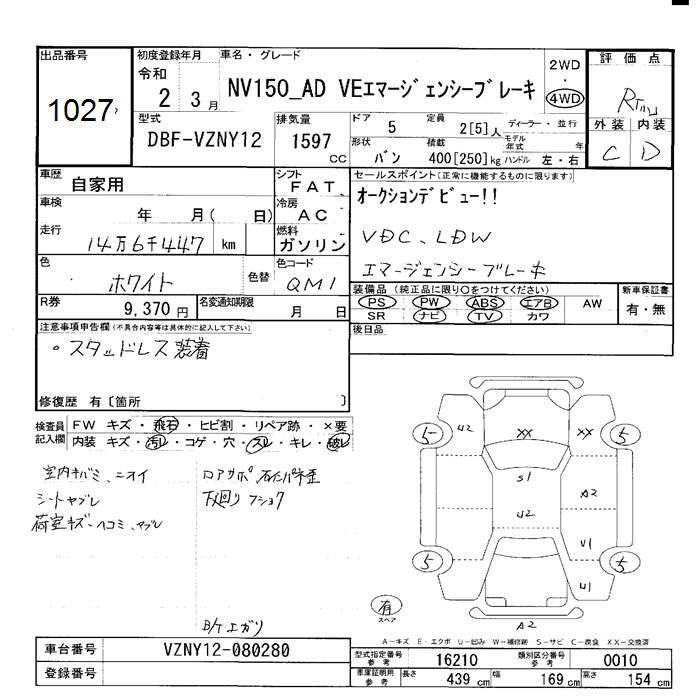 出品番号
1027
初度登録年月
令和
2 3月
車名・グレード
NV150_AD VEエマージェンシーブレーキ
2WD
・
4WD
評価点
外装 内装
C D
型式
DBF-VZNY12
排気量
1597
cc
ドア 5
定員 2[5]人
ディーラー・並行
形状 バン
積載 400[250]kg
モデル年式 年
ハンドル 左・右
車歴 自家用
シフト FAT
セールスポイント(正常に機能するものに限ります)
オークションデビュー!!
VDC、LDW
エマージェンシーブレーキ
車検 年 月( 日)
冷房 AC
走行 14万6千447 km
燃料 ガソリン
色 ホワイト
色替
色コード QM1
R券 9,370円
名変通知期限 月 日
装備品(純正品に限り○をつけてください)
PS PW ABS エアB AW
SR ナビ TV カワ
新車保証書
有・無
後日品
注意事項申告欄(不具合内容等は具体的に記入して下さい)
・スタッドレス装着
修復歴 有〔箇所 〕
検査員記入欄
FW キズ・飛石・ヒビ割・リペア跡・×要
内装 キズ・汚レ・コゲ・穴・スレ・キレ・破レ
室内キバミ、ニオイ
シートヤブレ
荷室キズ-ヘコミ、
下廻りフショク
B/Tエガリ
5 U2 XX XX 5
S1
A2
U2
U1
5 5
U1
有
スペア
A2
A-キズ E-エクボ U-凹み W-補修跡 S-サビ C-腐食 XX-交換済
車台番号 VZNY12-080280
登録番号
型式指定番号 参考 16210
類別区分番号 参考 0010
車庫証明用 参考 長さ 439 cm 幅 169 cm 高さ 154 cm